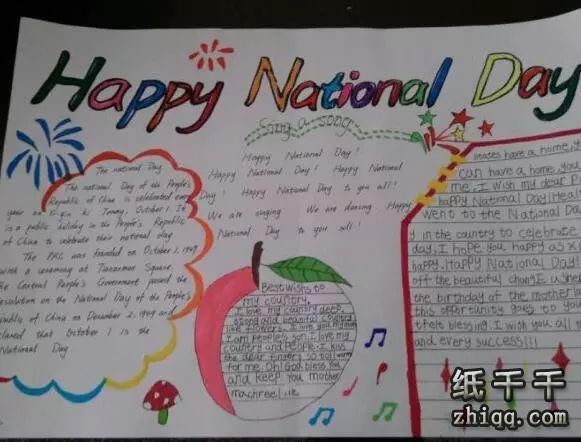 Happy National Day
Sing a song
Happy National Day!
Happy National Day! Happy National
Day! Happy National Day to you all!
We are singing We are dancing Happy
National Day to you all!
The national Day
The national Day of the People's
Republic of China is celebrated every
year on October 1. It
is a public holiday in the People's Republic
of China to celebrate their national day
The PRC was founded on October 1, 1949
with a ceremony at Tiananmen Square.
The Central People's Government passed the
Resolution on the National Day of the People's
Republic of China on December 2, 1949 and
declared that October 1 is the
National Day
Best wishes to
my country.
I love my country deep
strong and beautiful country
like flowers. I love you my
I am people's son. I love my
country and People. I kiss
the dear
for me. Oh! God bless you
and keep you mother
machree!
have a home, y
can have a home. you
me. I wish my dear
happy National Day! Hea
went to the National Da
y in the country to celebrate
day, I hope you happy as
happy. Happy National Day!
off the beautiful
the birthday of the mother
this opportunity goes to yo
blessing. I wish you all
and every success!!!
纸千千
zhiqq.com